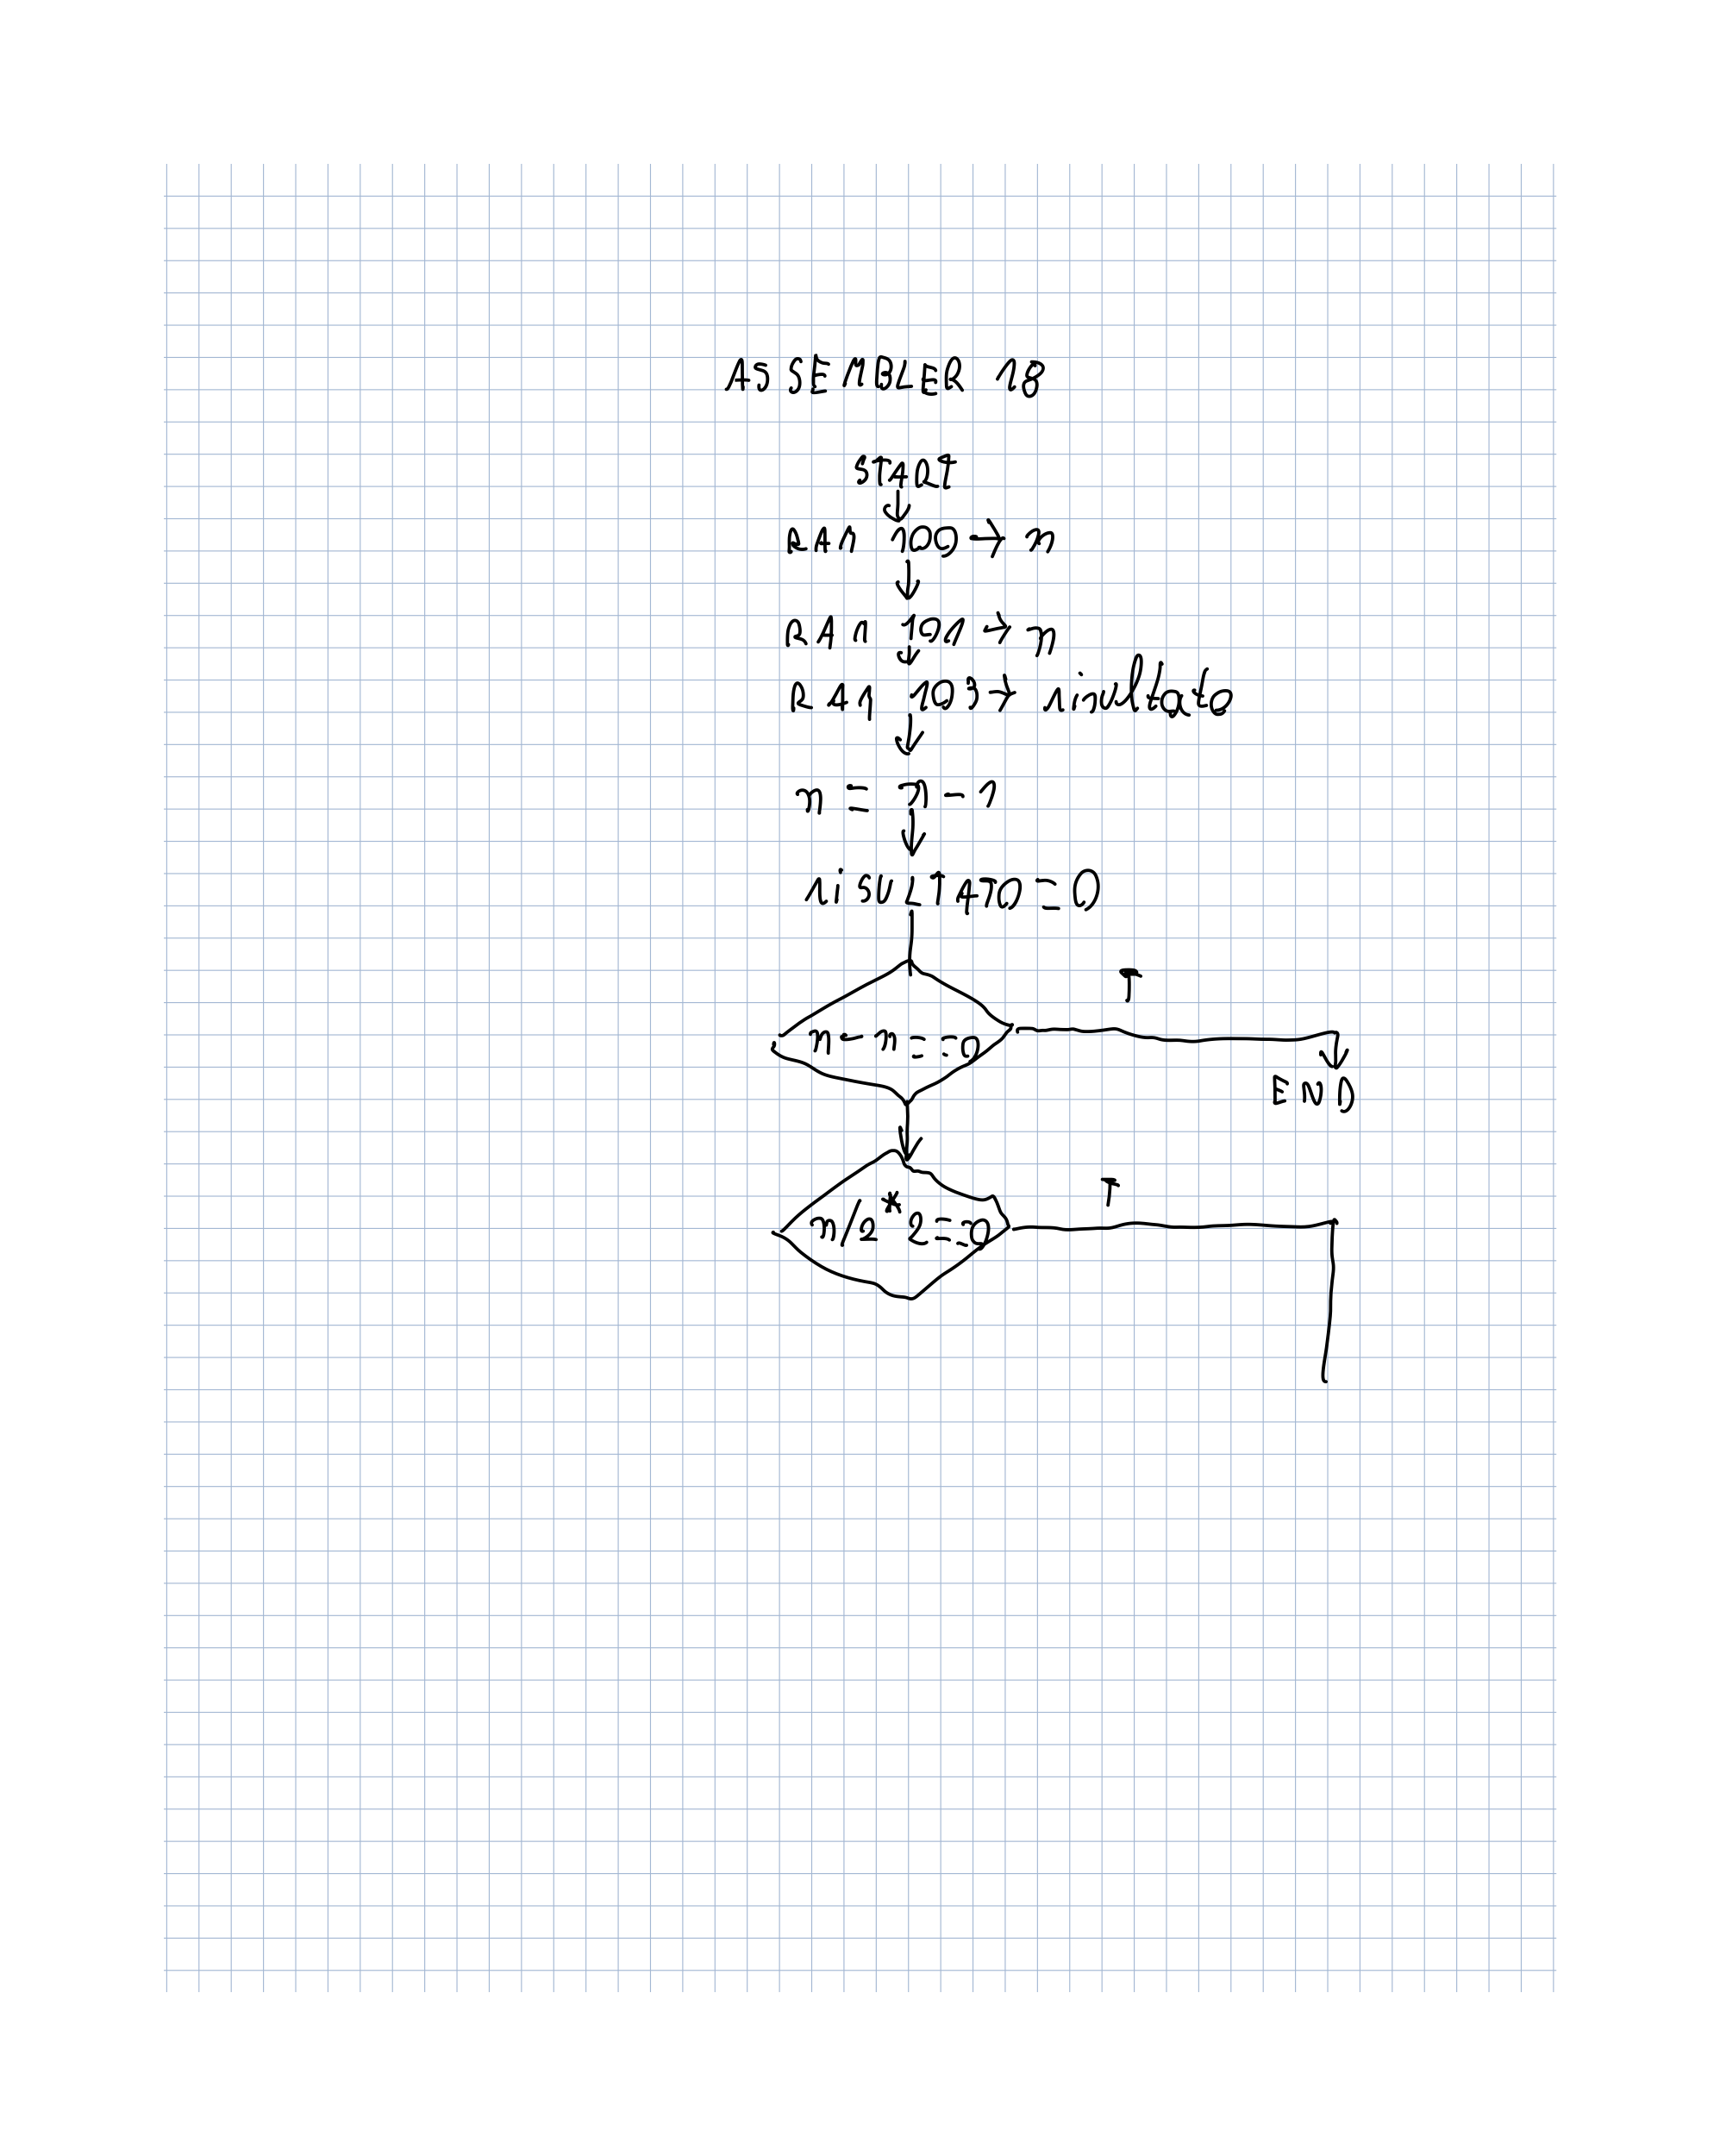 ASSEMBLER 18
START
RAM 100 → n
RAM 101 → n
RAM 103 → risultato
n = n - 1
riSULTATO = 0
n - n == 0
T
END
n/2 * 2 == 0
T